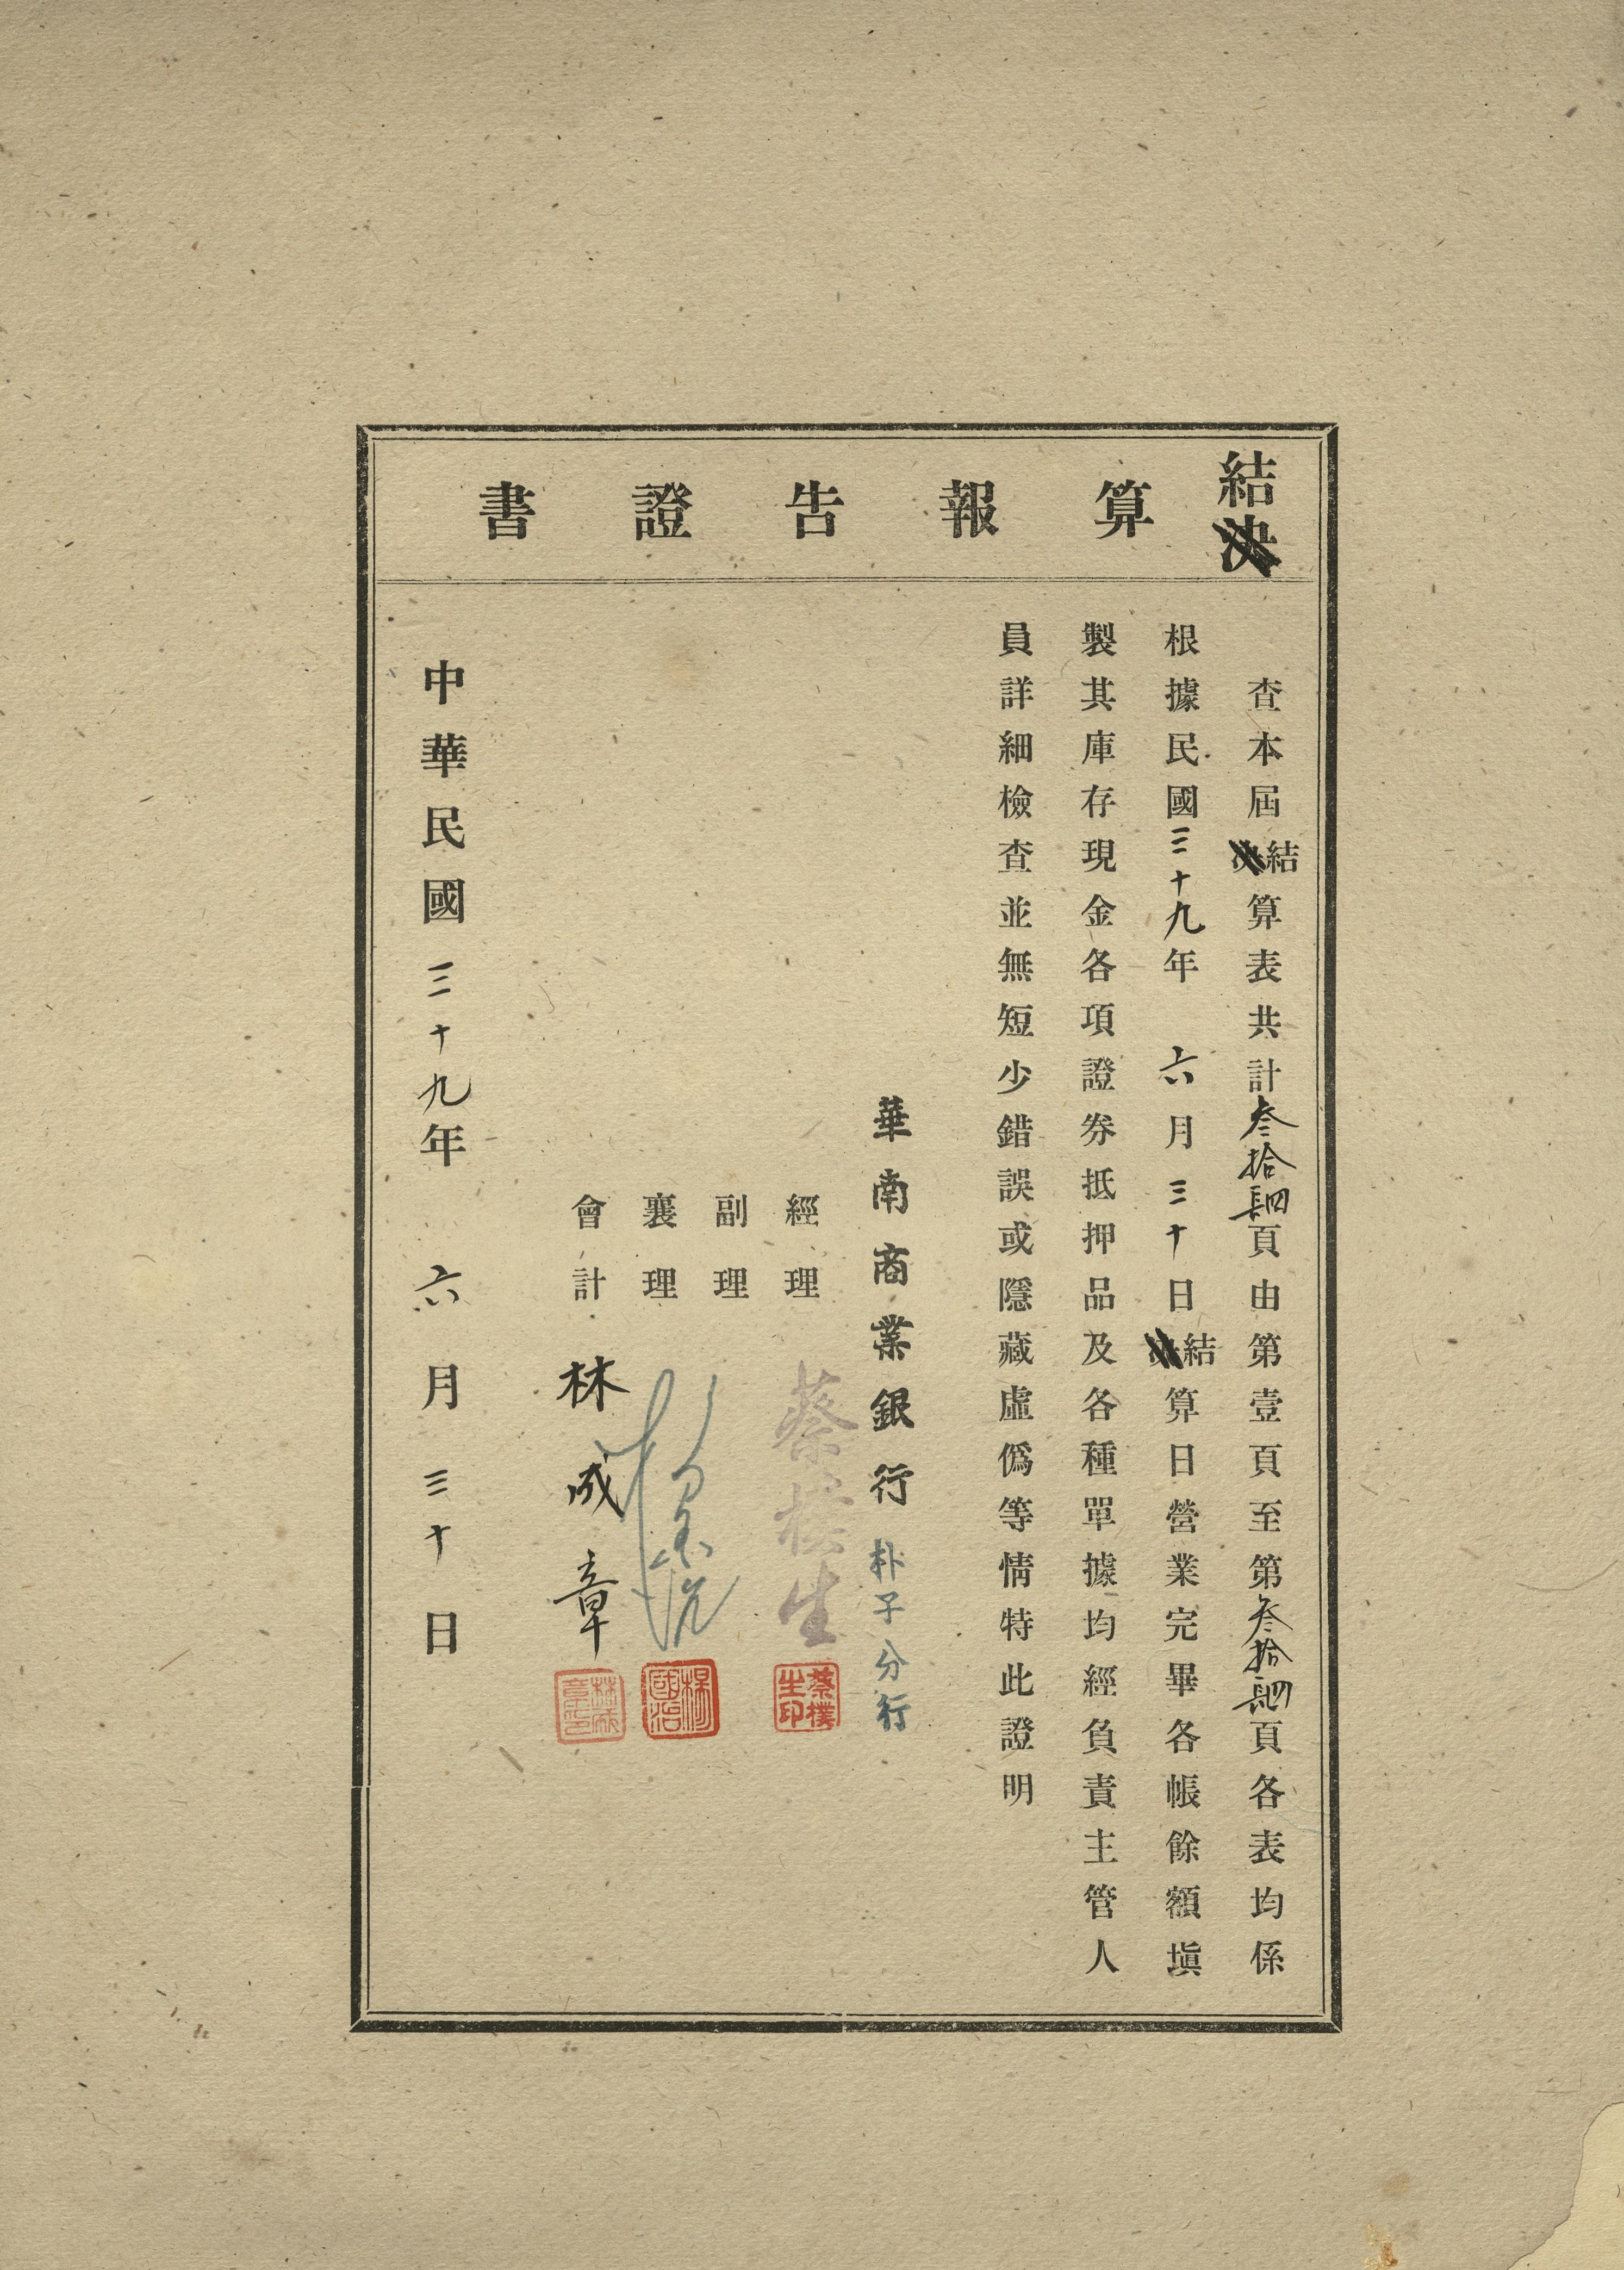 結決算報告證書
查本屆決結算表共計叁拾肆頁由第壹頁至第叁拾肆頁各表均係
根據民國三十九年 六月三十日決結算日營業完畢各帳餘額塡
製其庫存現金各項證券抵押品及各種單據均經負責主管人
員詳細檢查並無短少錯誤或隱藏虛僞等情特此證明
華南商業銀行朴子分行
經理 蔡樸生
蔡樸生印
副理
襄理 楊國治
楊國治
會計 林成章
林成章印
中華民國三十九年 六月三十日